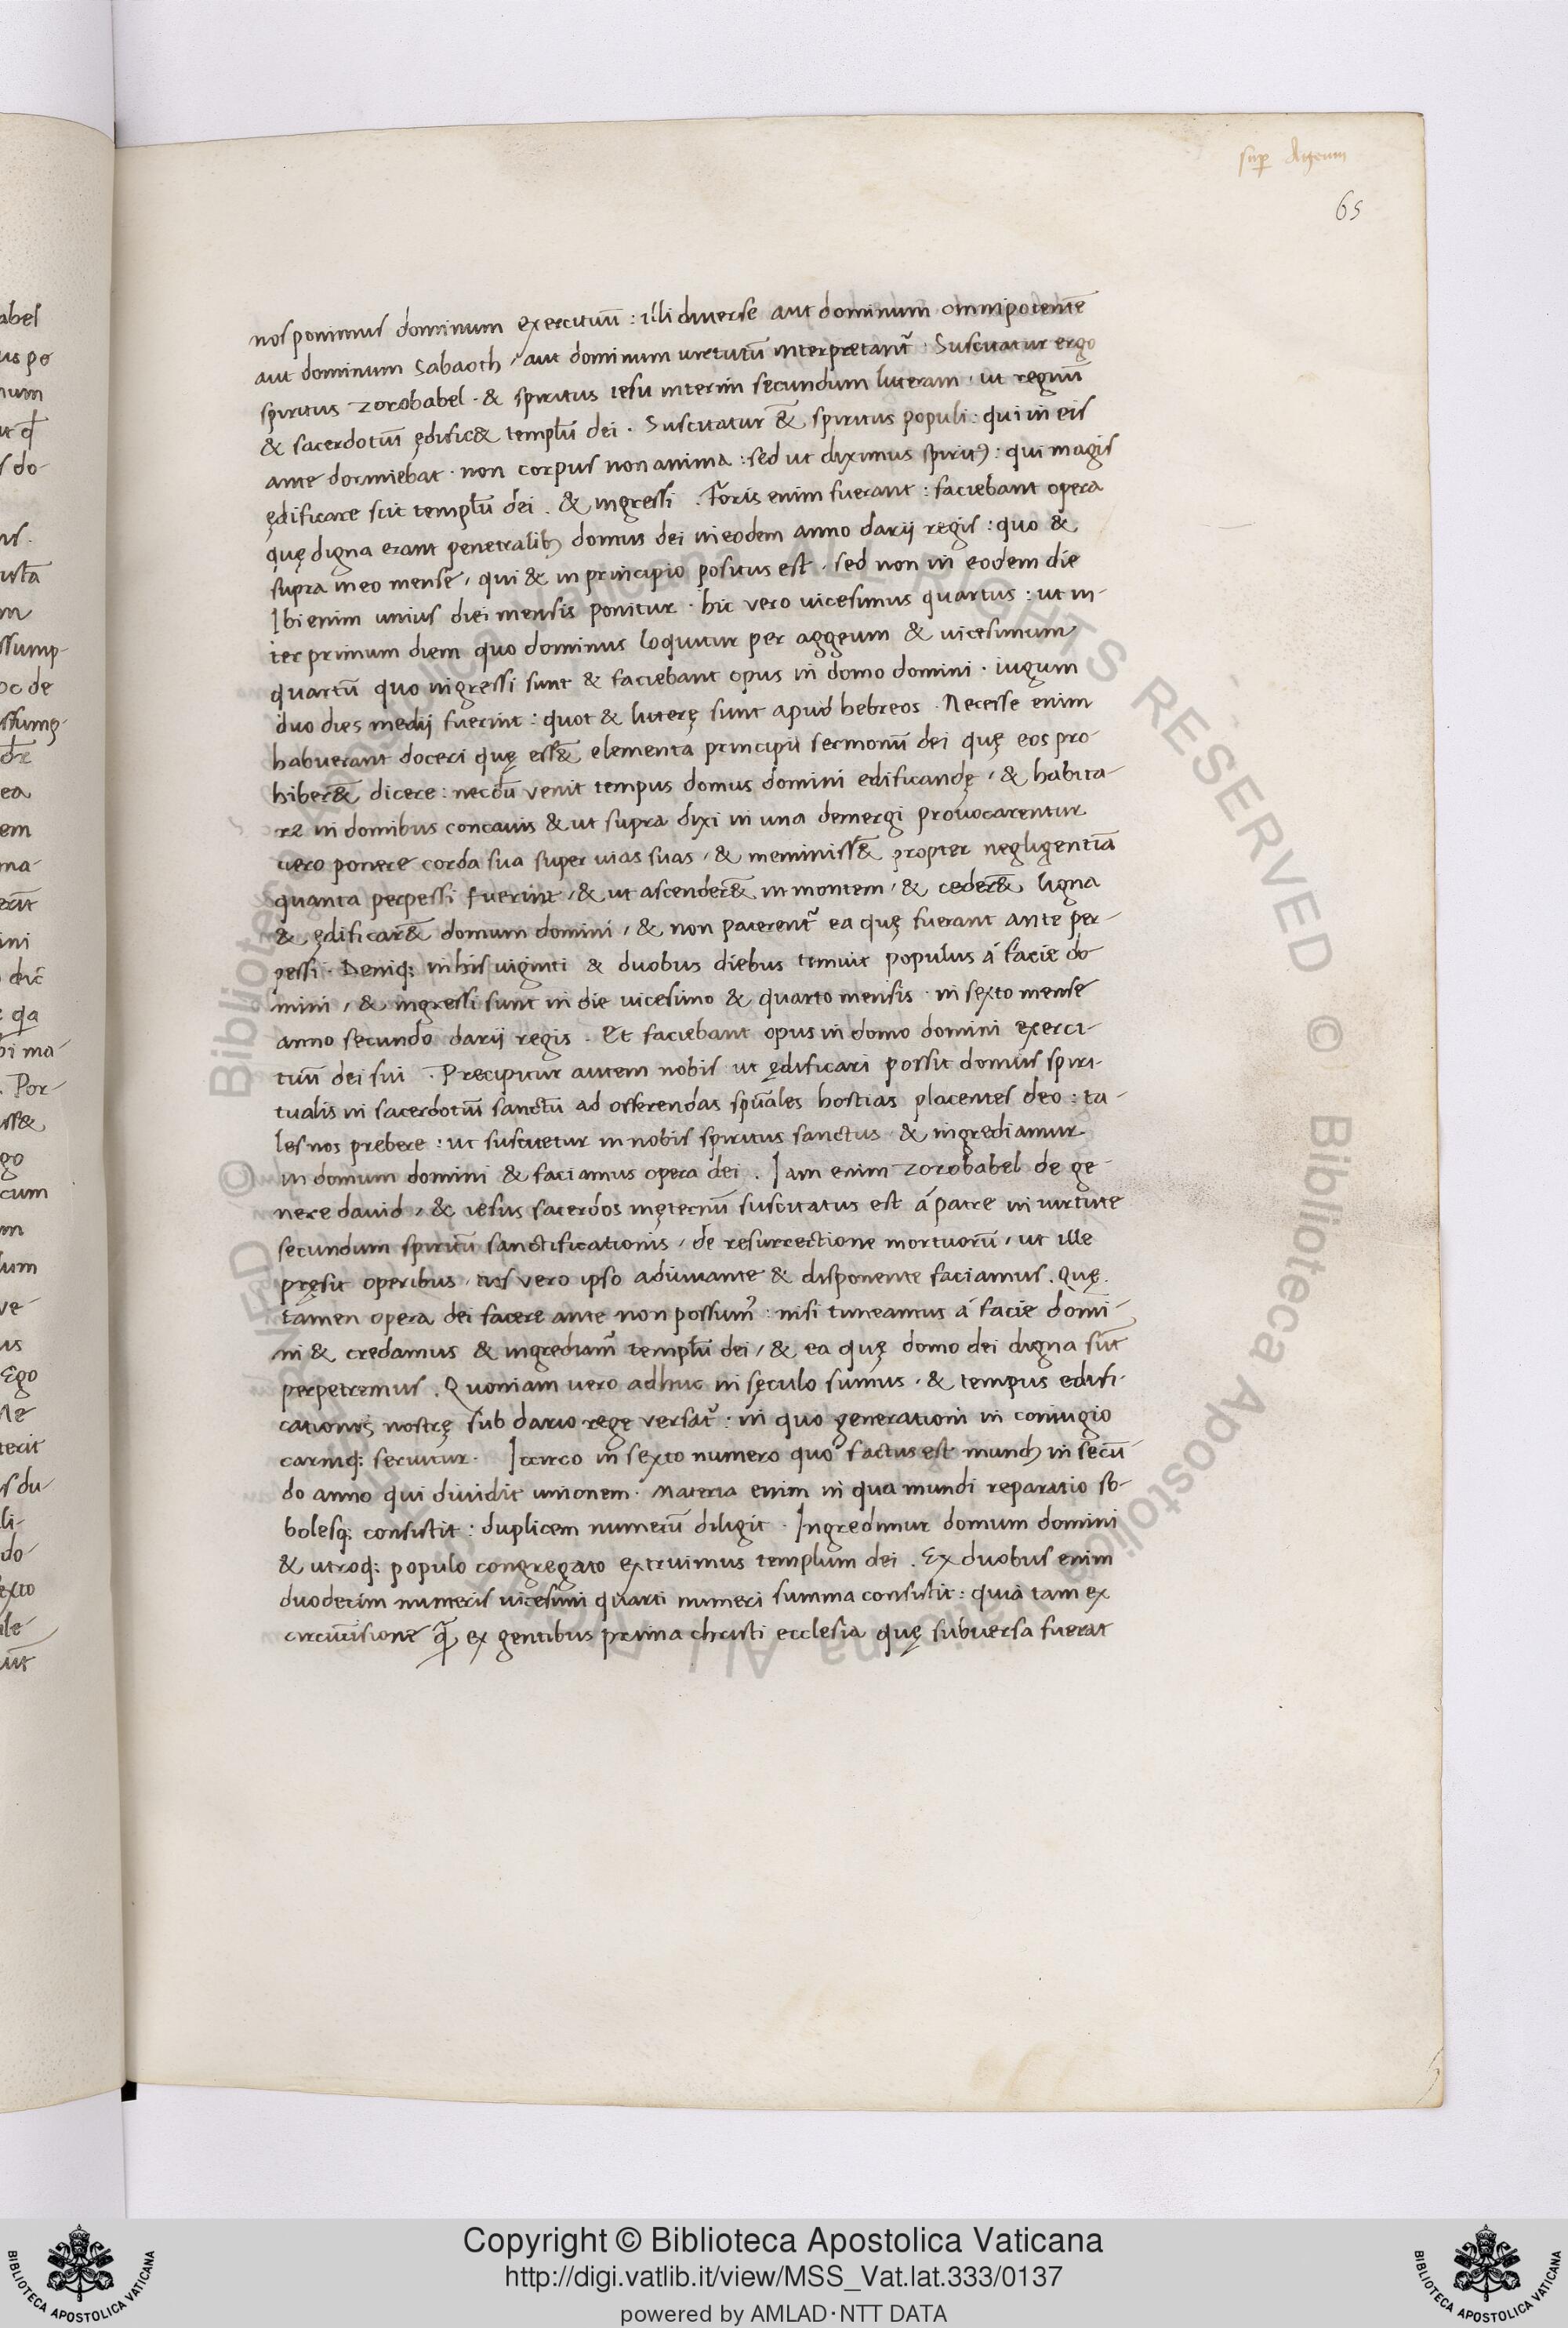 sup Ageum
65
nos ponimus dominum exercituū : illi diverse aut dominum omnipotentē
aut dominum Sabaoth , aut dominum virtutū interpretant᷑ . Suscitatur ergo
spiritus zorobabel . & spiritus iesu interim secundum litteram , ut regnū
& sacerdotiū ędific& templū dei . Suscitatur & spiritus populi : qui in eis
ante dormiebat . non corpus non anima : sed ut diximus spiritꝰ : qui magis
ędificare scit templū dei . & ingressi . Foris enim fuerant : faciebant opera
quę digna erant penetralibꝰ domus dei in eodem anno darij regis : quo &
supra in eo mense , qui & in principio positus est , sed non in eodem die
Ibi enim unius diei mensis ponitur . hic vero vicesimus quartus : ut in-
ter primum diem quo dominus loquitur per aggeum & vicesimum
quartū quo ingressi sunt & faciebant opus in domo domini . iugum
duo dies medij fuerint : quot & litterę sunt apud hebreos . Necesse enim
habuerant doceri quę ess& elementa principii sermonū dei quę eos pro-
hiber& dicere : necdū venit tempus domus domini edificandę , & habita-
re in domibus concavis & ut supra dixi in una demergi provocarentur
vero ponere corda sua super vias suas , & meminiss& propter negligentiā
quanta perpessi fuerint , & ut ascender& in montem , & ceder& ligna
& ędificar& domum domini , & non paterent᷑ ea quę fuerant ante per-
pessi . Deniq; in his viginti & duobus diebus timuit populus á facie do
mini , & ingressi sunt in die vicesimo & quarto mensis . in sexto mense
anno secundo darij regis . Et faciebant opus in domo domini exerci-
tuū dei sui . Precipitur autem nobis ut ędificari possit domus spiri-
tualis in sacerdotiū sanctū ad offerendas spūales hostias placentes deo : ta-
les nos prebere : ut suscitetur in nobis spiritus sanctus & ingrediamur
in domum domini & faciamus opera dei . Iam enim zorobabel de ge-
nere david , & iesus sacerdos inęternū suscitatus est á patre in virtute
secundum spiritū sanctificationis , de resurrectione mortuorū , ut ille
pręsit operibus , nos vero ipso adiuvante & disponente faciamus . Quę
tamen opera dei facere ante non possumꝰ : nisi timeamus á facie domi-
ni & credamus & ingrediamꝰ templū dei , & ea quę domo dei digna sūt
perpetremus . Quoniam vero adhuc in sęculo sumus , & tempus edifi-
cationis nostrę sub dario rege versat᷑ : in quo generationi in coniugio
carniq; servitur . Iccirco in sexto numero quo factus est mundꝰ in secū
do anno qui dividit unionem . Materia enim in qua mundi reparatio so-
bolesq; consistit : duplicem numerū diligit . Ingredimur domum domini
& utroq; populo congregato extruimus templum dei . Ex duobus enim
duodecim numeris vicesimi quarti numeri summa consistit : quia tam ex
circūcisione q̄ ex gentibus prima christi ecclesia quę subversa fuerat
Copyright © Biblioteca Apostolica Vaticana
http://digi.vatlib.it/view/MSS_Vat.lat.333/0137
powered by AMLAD·NTT DATA